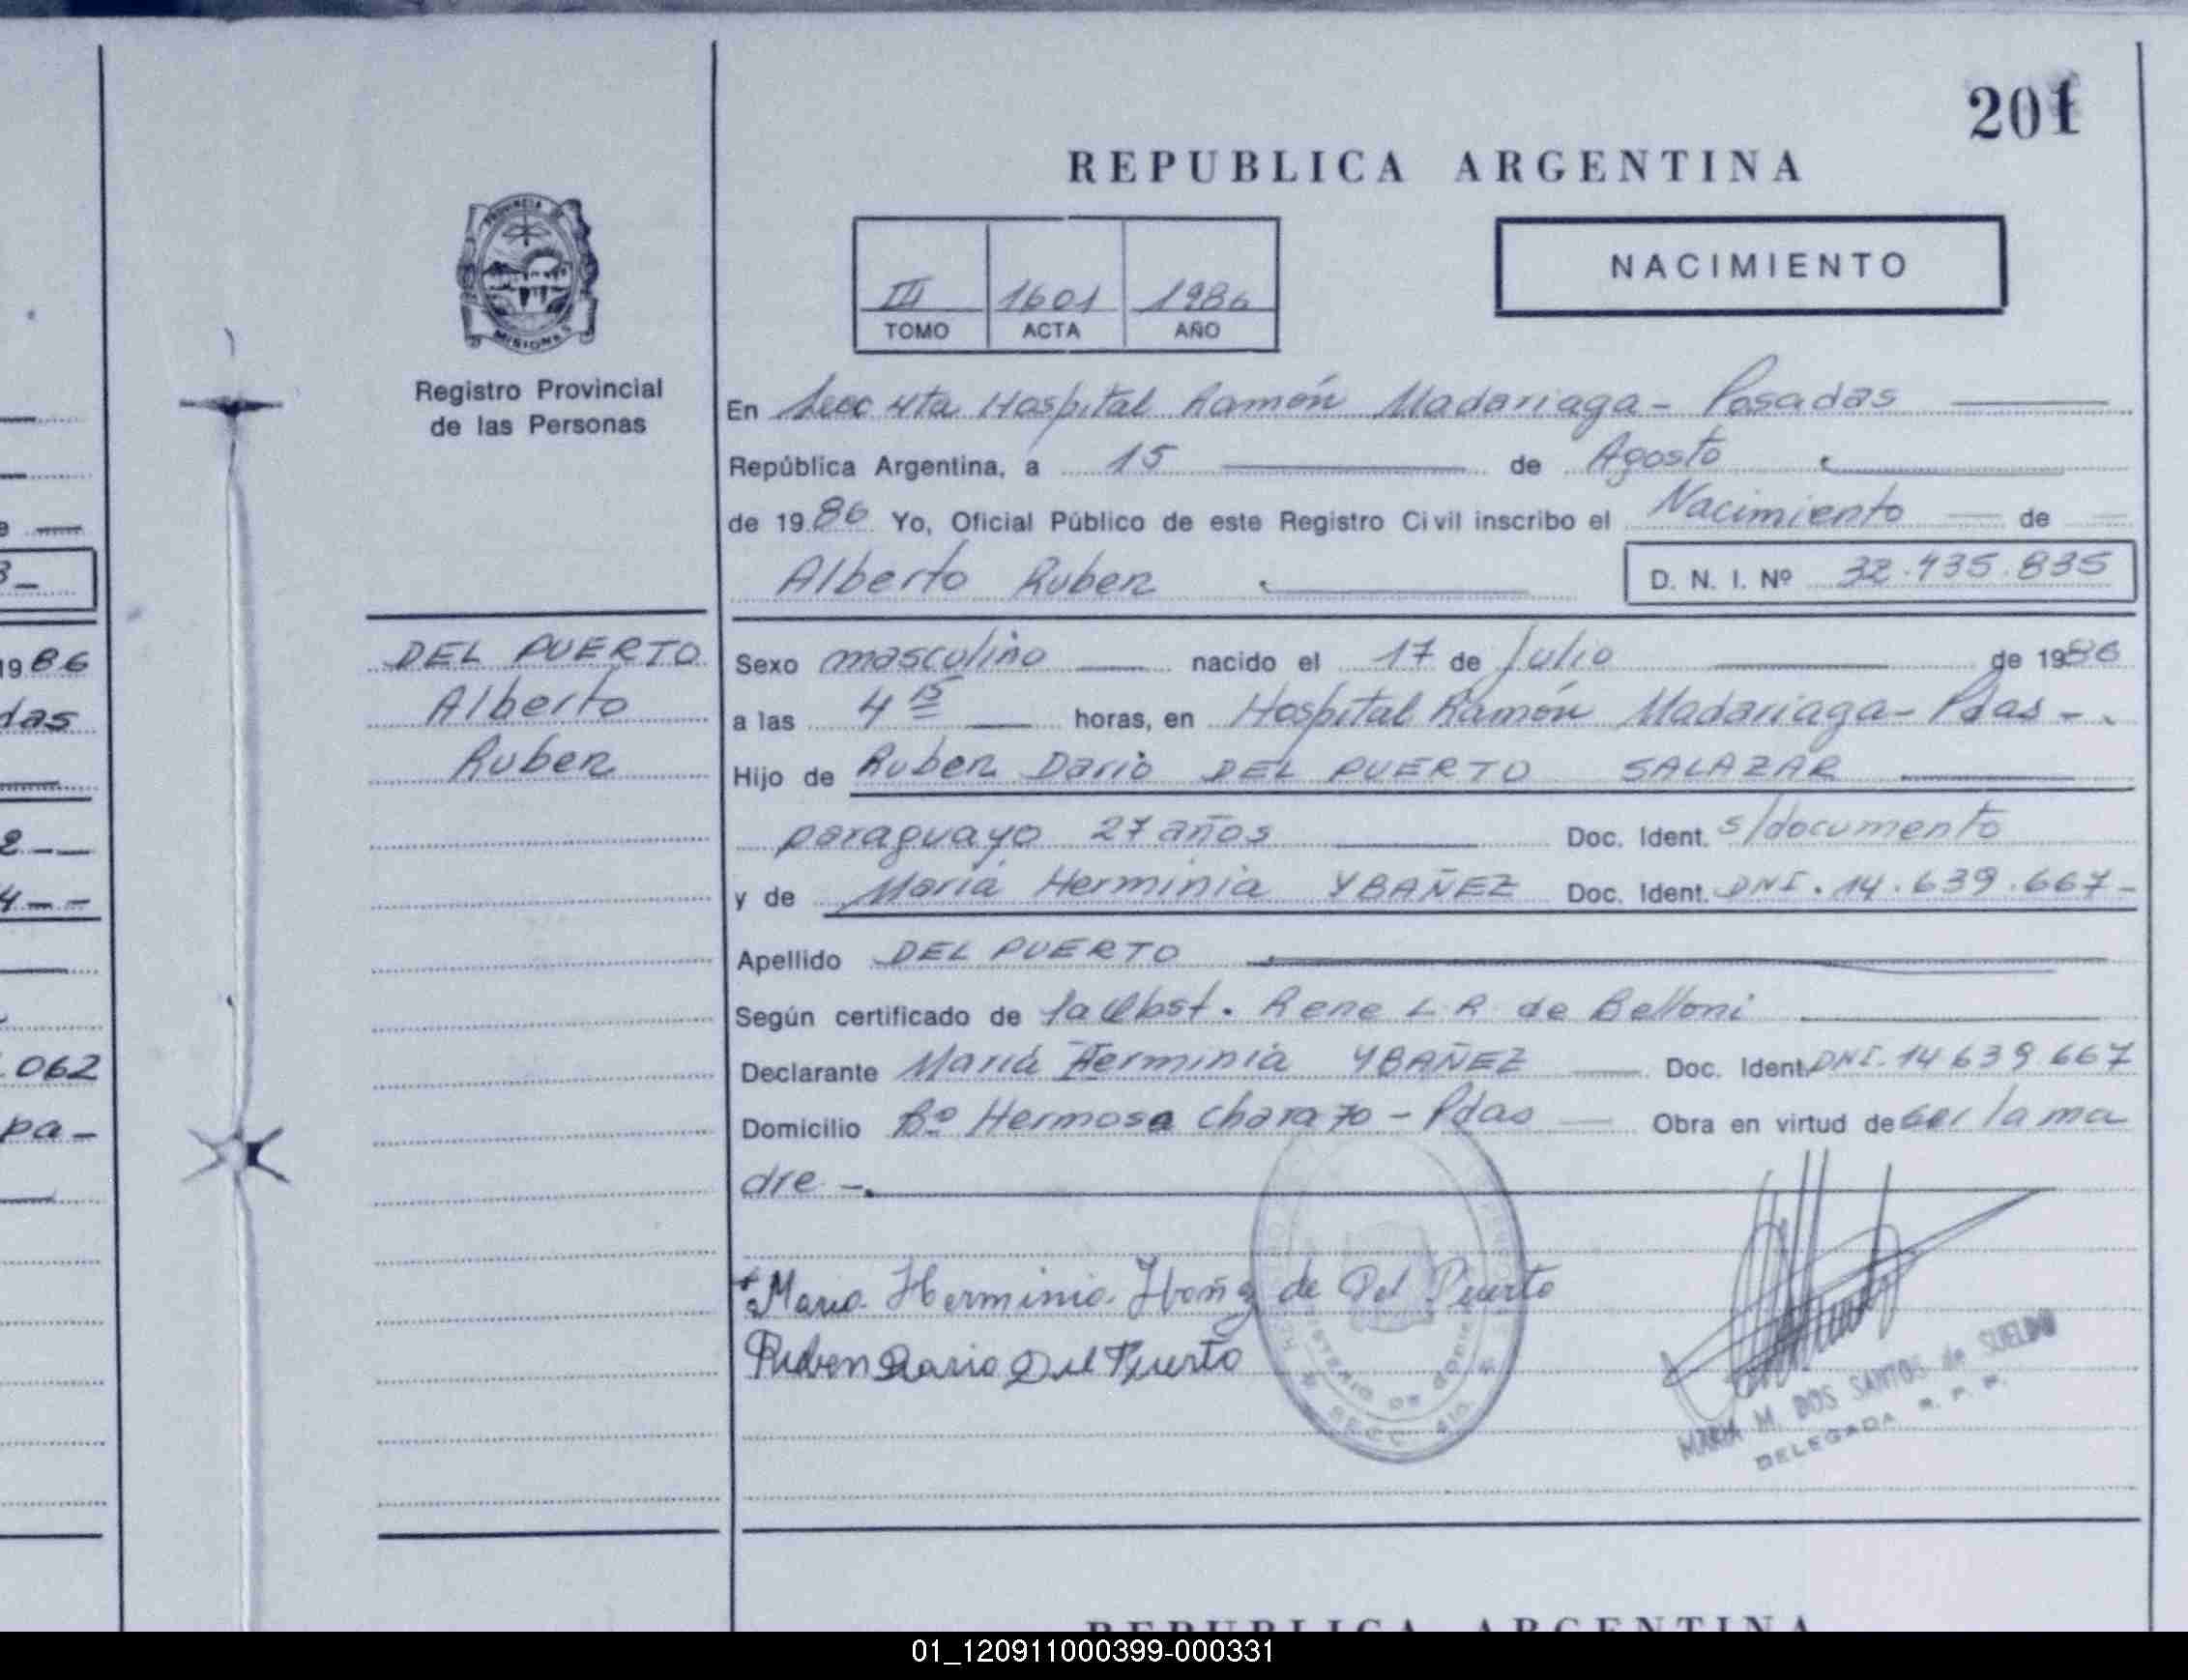 201
REPUBLICA ARGENTINA
PROVINCIA DE
MISIONES
Registro Provincial
de las Personas
III 1601 1986
TOMO ACTA AÑO
NACIMIENTO
En Secc 4ta Hospital Ramón Madariaga - Posadas
República Argentina, a 15 de Agosto
de 1986 Yo, Oficial Público de este Registro Civil inscribo el Nacimiento de
Alberto Ruben D. N. I. Nº 32.435.835
DEL PUERTO
Alberto
Ruben
Sexo masculino nacido el 17 de Julio de 1986
a las 4 15 horas, en Hospital Ramón Madariaga - Pdas -
Hijo de Ruben Dario DEL PUERTO SALAZAR
paraguayo 27 años Doc. Ident. s/documento
y de María Herminia YBAÑEZ Doc. Ident. DNI. 14.639.667-
Apellido DEL PUERTO
Según certificado de la Obst. Rene L R de Belloni
Declarante María Herminia YBAÑEZ Doc. Ident. DNI. 14 639 667
Domicilio Bº Hermoso - Pdas Obra en virtud de ser la ma
dre -.
Maria Herminia Ibañez de Del Puerto
Ruben Dario Del Puerto
SECC. 4ta.
MARIA M. DOS SANTOS de SUELDO
DELEGADA R. P. P.
1986
das
062
pa-
REPUBLICA ARGENTINA
01_120911000399-000331